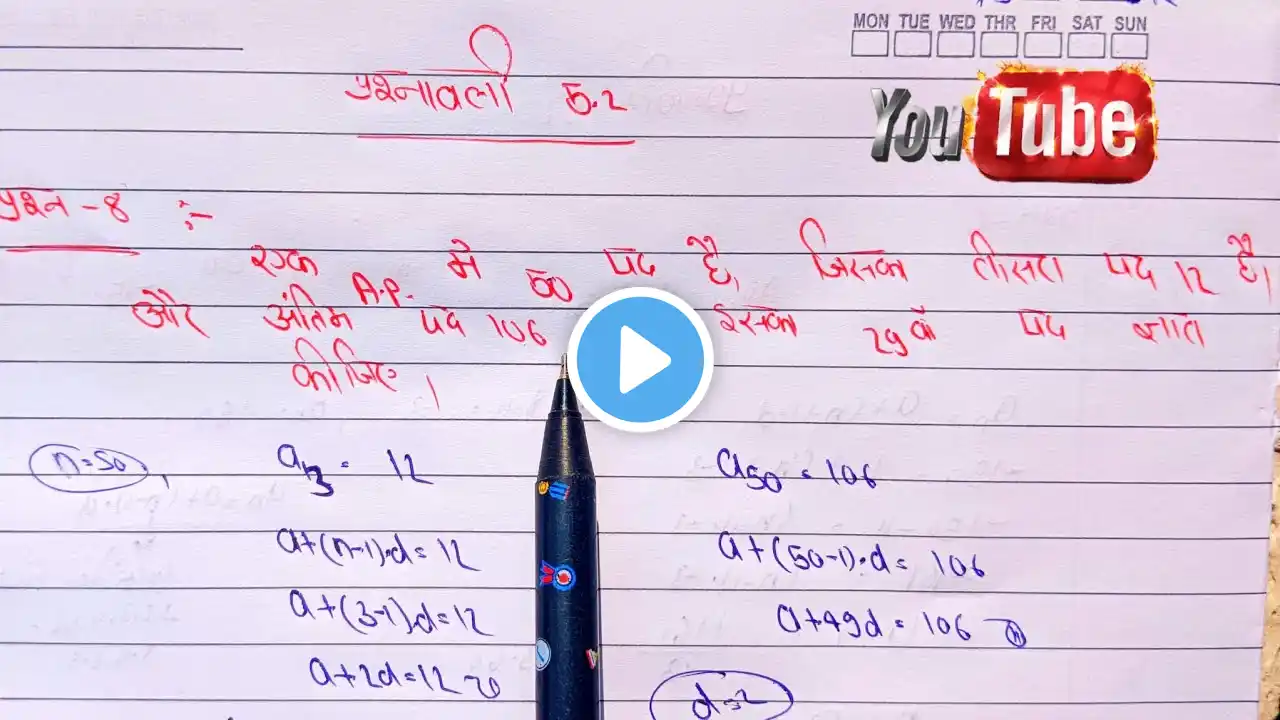 MON TUE WED THR FRI SAT SUN
प्रश्नावली 5.2
YouTube
प्रश्न - 8 :-
एक A.P. में 50 पद है, जिसका तीसरा पद 12 है।
और अंतिम पद 106 इसका 29वाँ पद ज्ञात
कीजिए।
n=50, a3 = 12 a50 = 106
a+(n-1).d=12 a+(50-1).d= 106
a+(3-1).d=12 a+49d = 106
a+2d=12
d=2